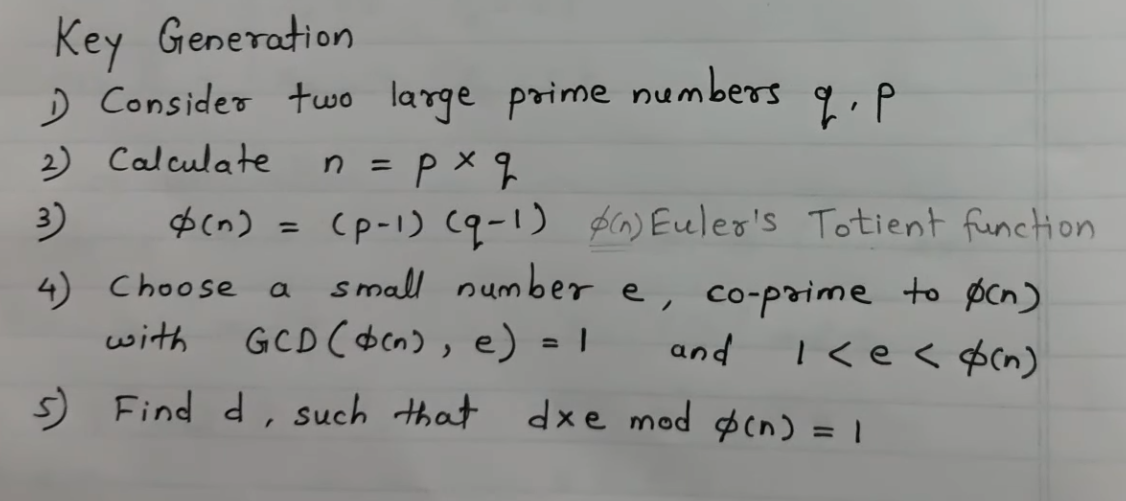 Key Generation
1) Consider two large prime numbers q, p
2) Calculate n = p × q
3) ϕ(n) = (p-1) (q-1) ϕ(n) Euler's Totient function
4) Choose a small number e, co-prime to ϕ(n)
with GCD(ϕ(n), e) = 1 and 1 < e < ϕ(n)
5) Find d, such that d×e mod ϕ(n) = 1